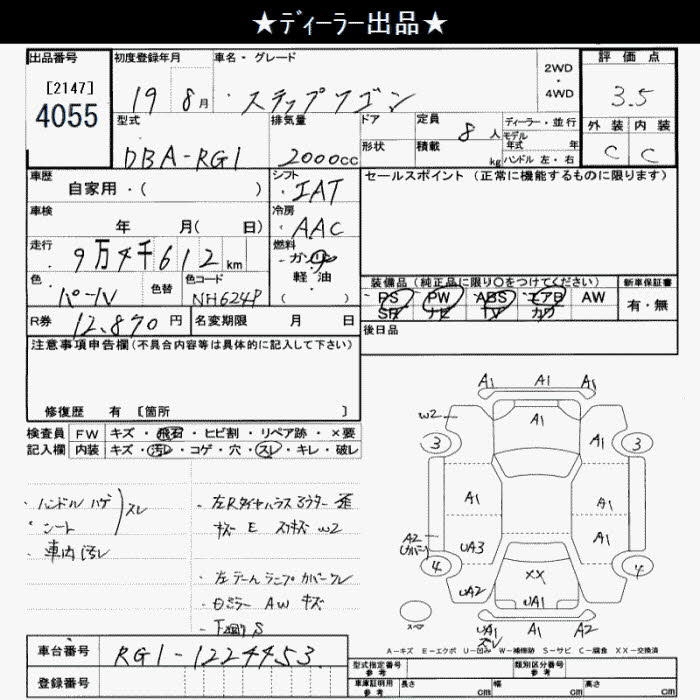 ★ディーラー出品★
出品番号
[2147]
4055
初度登録年月
19 8月
車名・グレード
・ステップワゴン
2WD
・
4WD
評価点
3.5
型式
DBA-RG1
排気量
2000cc
ドア
形状
定員 8人
積載 kg
ディーラー・並行
モデル年式 年
ハンドル 左・右
外装 内装
C C
車歴
自家用・( )
シフト
・IAT
セールスポイント (正常に機能するものに限ります)
車検
年 月( 日)
冷房
AAC
走行
9万4千612km
燃料
ガソリン
軽油
( )
色
パール
色替
色コード
NH624P
装備品 (純正品に限り○をつけてください)
新車保証書
PS PW ABS エアB AW
SR ナビ TV カワ
有・無
R券 12,870円
名変期限 月 日
後日品
注意事項申告欄(不具合内容等は具体的に記入して下さい)
修復歴 有 [箇所 ]
検査員 FW キズ・飛石・ヒビ割・リペア跡・×要
記入欄 内装 キズ・汚レ・コゲ・穴・スレ・キレ・破レ
・ハンドル ハゲ
・シート スレ
・車内汚レ
・左Rタイヤハウス
キズ E W2
・左テールランプカバーワレ
ミラー AW キズ
・下廻りS
A1 A1 A1
W2 A1
3 A1 3
A1 A1
A2 A1
(カバー) UA3
4 XX 4
UA2 UA1
スペア
UA1 A1 A2
ズレ
A−キズ E−エクボ U−凹み W−補修跡 S−サビ C−腐食 XX−交換済
車台番号 RG1-1224453
登録番号
型式指定番号 参考
類別区分番号 参考
車庫証明用 参考
長さ cm 幅 cm 高さ cm